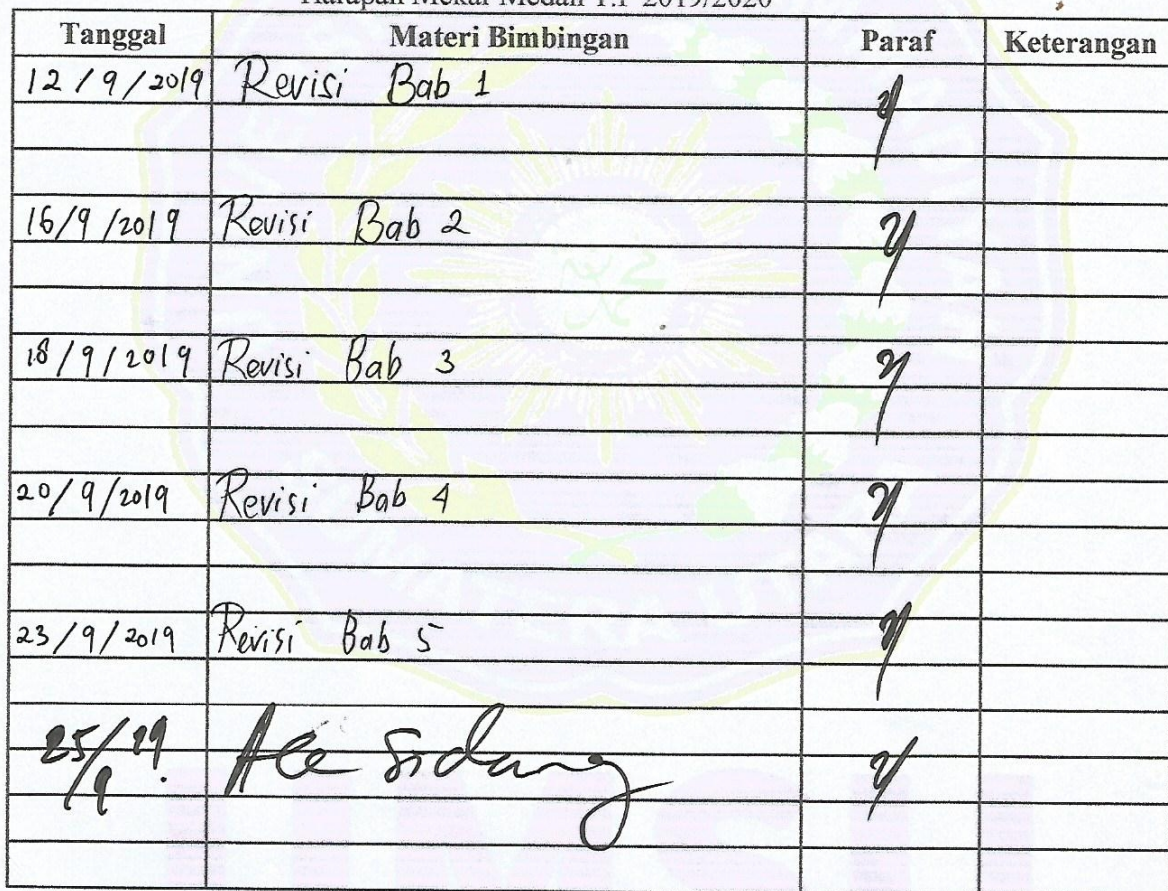 Harapan Mekar Medan T.P 2019/2020
Tanggal Materi Bimbingan Paraf Keterangan
12/9/2019 Revisi Bab 1
16/9/2019 Revisi Bab 2
18/9/2019 Revisi Bab 3
20/9/2019 Revisi Bab 4
23/9/2019 Revisi Bab 5
25/9 19. Acc Sidang